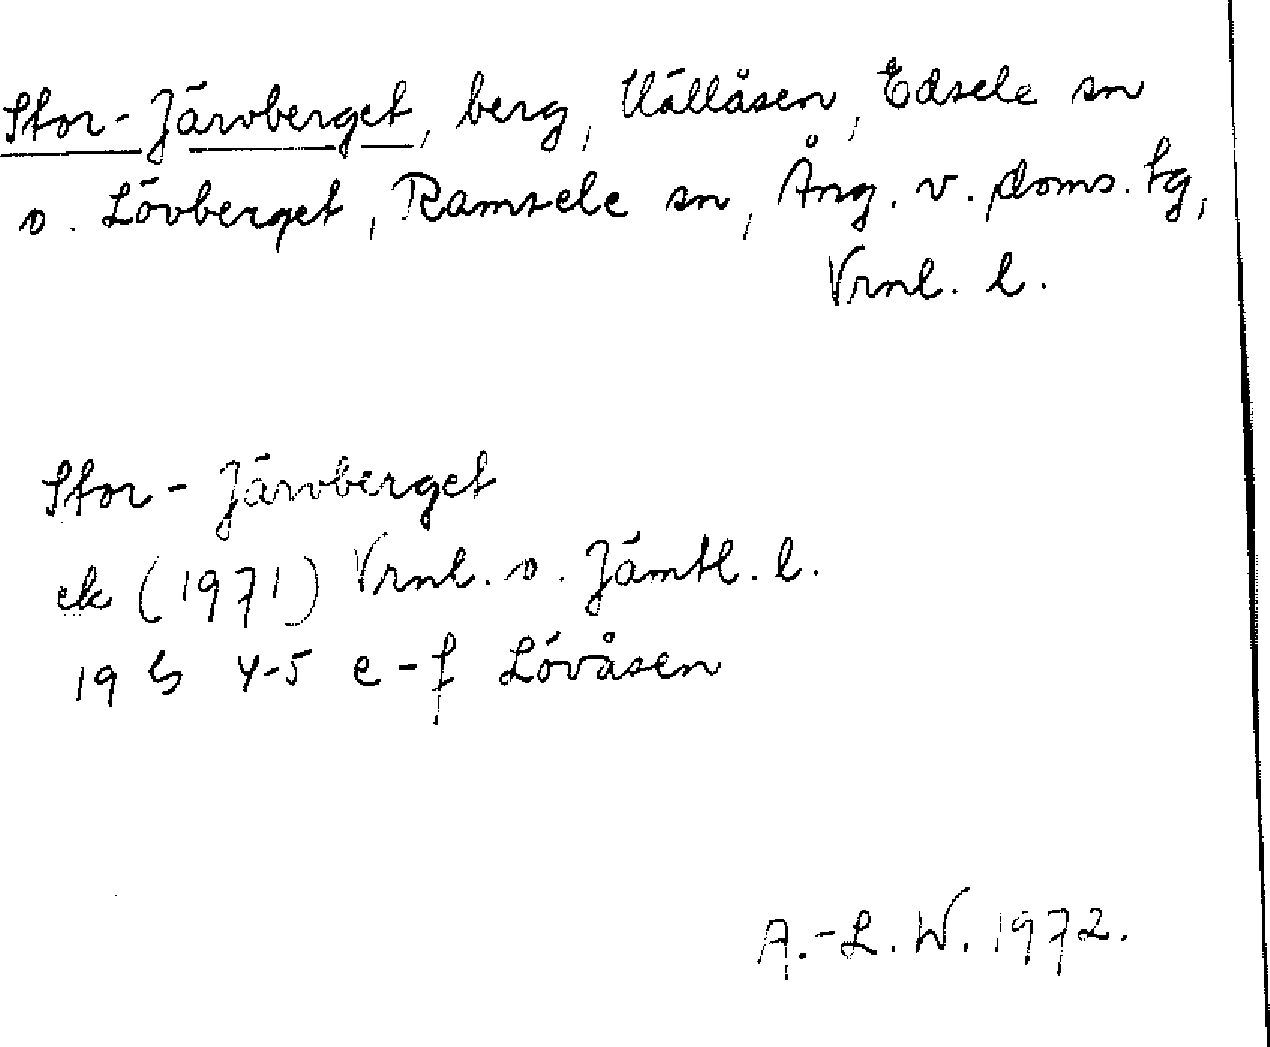 Stor-Järvberget, berg, Vällåsen, Edsele sn
o. Lövberget, Ramsele sn, Ång. v. doms. tg,
Vrnl. l.
Stor-Järvberget
ek (1971) Vrnl. o. Jämtl. l.
19 G 4-5 e-f Lövåsen
A.-L. W. 1972.